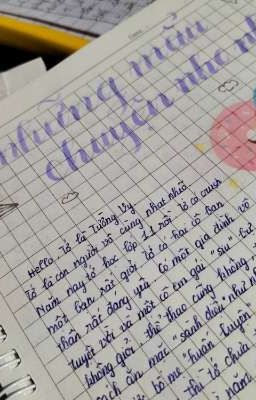 những mẩu
chuyện nhỏ nh
Hello, Tớ là Tường Vy
Tớ là con người vô cùng nhạt nhoà
Năm nay tớ học lớp 11 rồi. Tớ có crush
một bạn rất giỏi. Tớ có học cô bạn
thân rất đáng yêu. Có một gia đình vô
tuyệt vời và một cô em gái "sụ" tử
không giỏi, thể thao cũng không
cách ăn mặc "sành điệu" như n
bố mẹ "huấn luyện"
thì tớ chưa
năm